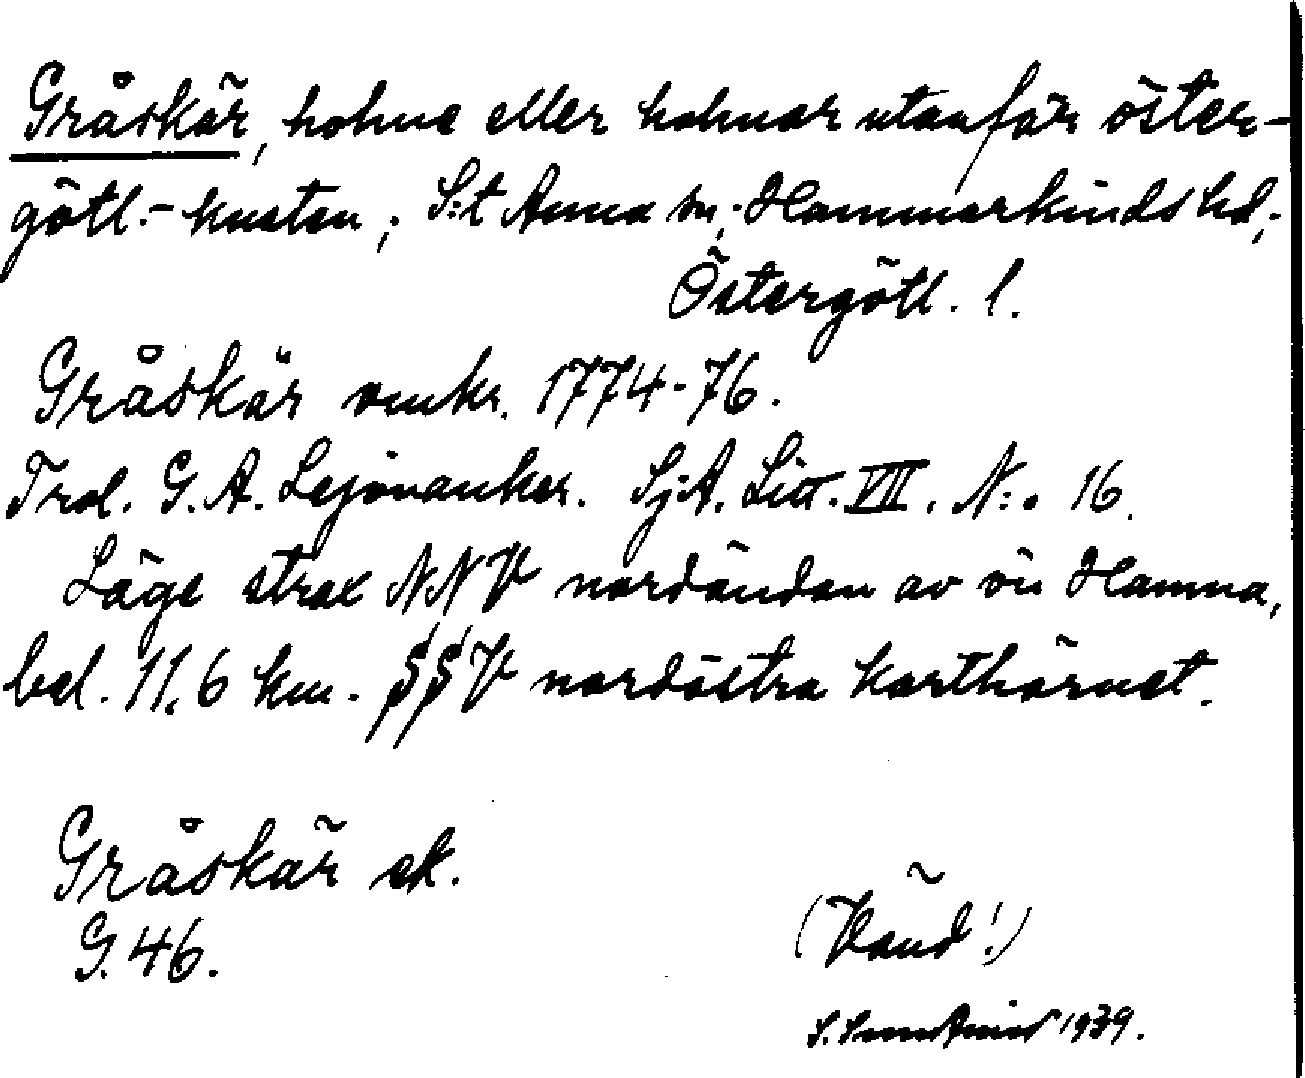 Gråskär, holme eller holmar utanför öster-
götl.-kusten; S:t Anna sn; Hammarkinds hd;
Östergötl. l.
Gråskär omkr. 1774-76.
Trol. G. A. Lejonanker. Sj.A. Litt. VIII. N:o 16.
Läge strax NNV nordändan av ön Hamna,
bel. 11,6 km. SSV nordöstra karthörnet.
Gråskär ek.
G. 46.
(Vänd!)
S. 1939.